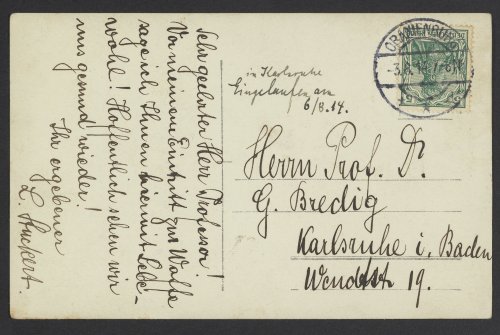 Sehr geehrter Herr Professor!
Vor meinem Eintritt zur Waffe
sage ich Ihnen hiermit Lebe-
wohl! Hoffentlich sehen wir
uns gesund wieder!
Ihr ergebener
L.
in Karlsruhe
Eingelaufen am
6/8.14.
ORANIENBURG
Herrn Prof. Dr.
G. Bredig
Karlsruhe i. Baden
Wendtstr 19.